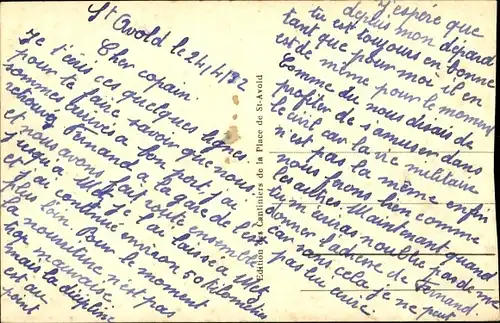 St Avold le 24/4/32
Cher copain
Je t'écris ces quelques lignes
pour te faire savoir que nous
sommes arrivés à bon port j'ai
retrouvé Fernand a la gare de l'est
et nous avons fait route ensemble
jusqu'a Metz je l'ai laissé a Metz
et j'ai continué environ 50 kilomètres
plus loin. Pour le moment
la nourriture n'est pas
trop mauvaise
mais la discipline
est au
point
Edition des Cantiniers de la Place de St-Avold
J'espère que
depuis mon départ
tu est toujours en bonne
tant que pour moi il en
est de même pour le moment
Comme du nous disais de
profiter de s'amuser dans
le civil car la vie militaire
n'est pas la même enfin
nous ferons bien comme
les autres. Maintenant quand
tu m'écriras n'oublie pas de me
donner l'adresse de Fernand.
car sans cela je ne peut
pas lui écrire.